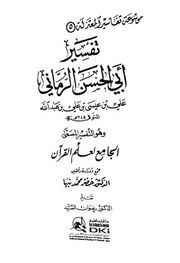 موسوعة تفاسير المعتزلة (٥)
تفسير
أبي الحسن الرماني
علي بن عيسى بن علي بن عبد الله
المتوفى ٣٨٤هـ
وهو التفسير المسمى
الجامع لعلم القرآن
الدكتور خضر محمد نبها
تقديم
الدكتور رضوان السيد
DKI